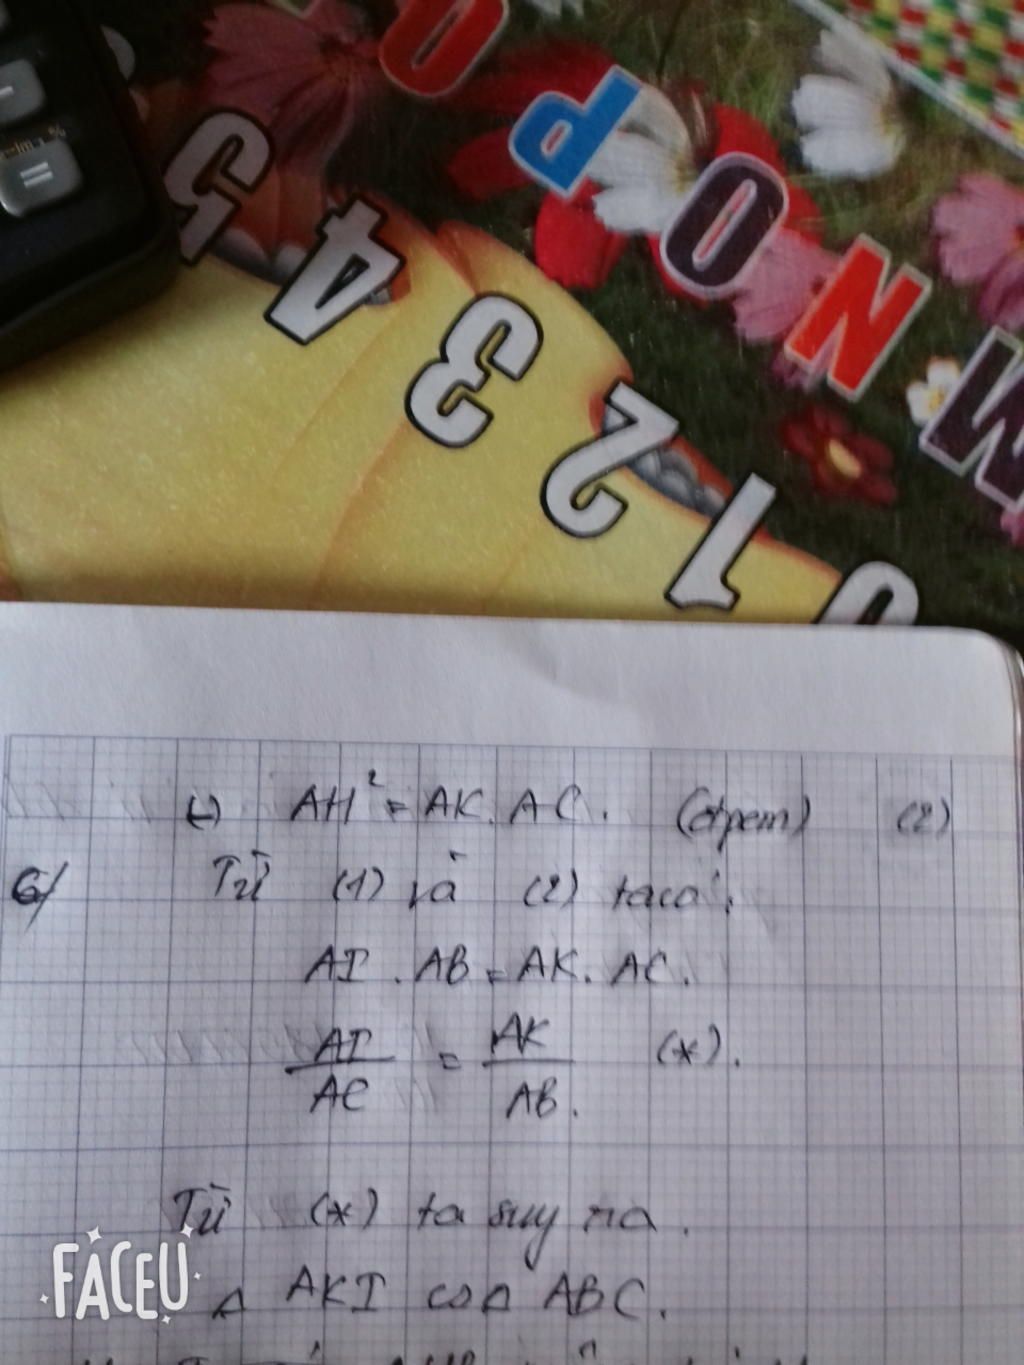 =
5 4 3 2 1 0
O P O N M
(-) AH² = AK. AC. (đpcm) (2)
6/ Từ (1) và (2) ta có:
AI . AB = AK. AC.
AI/AC = AK/AB. (*).
Từ (*) ta suy ra.
Δ AKI ∽ Δ ABC.
FACEU